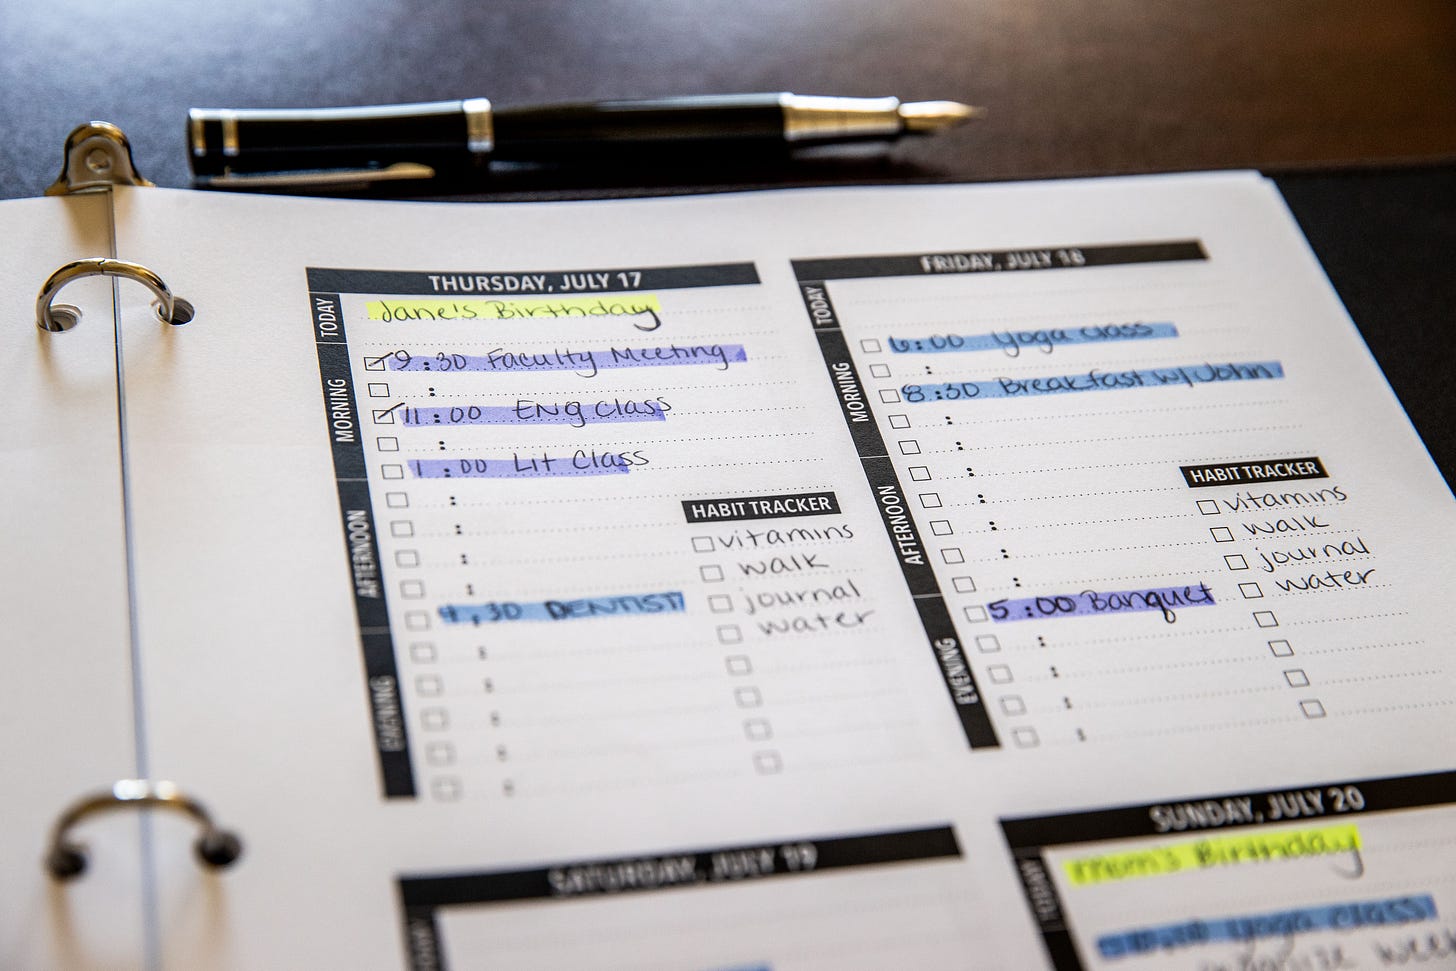 THURSDAY, JULY 17
TODAY
Jane's Birthday
MORNING
9:30 Faculty Meeting
11:00 Eng Class
1:00 Lit Class
AFTERNOON
:30 DENTIST
EVENING
HABIT TRACKER
vitamins
walk
journal
water
FRIDAY, JULY 18
TODAY
MORNING
6:00 Yoga class
8:30 Breakfast w/ John
AFTERNOON
5:00 Banquet
EVENING
HABIT TRACKER
vitamins
walk
journal
water
SATURDAY, JULY 19
TODAY
SUNDAY, JULY 20
TODAY
Mom's Birthday
Yoga class